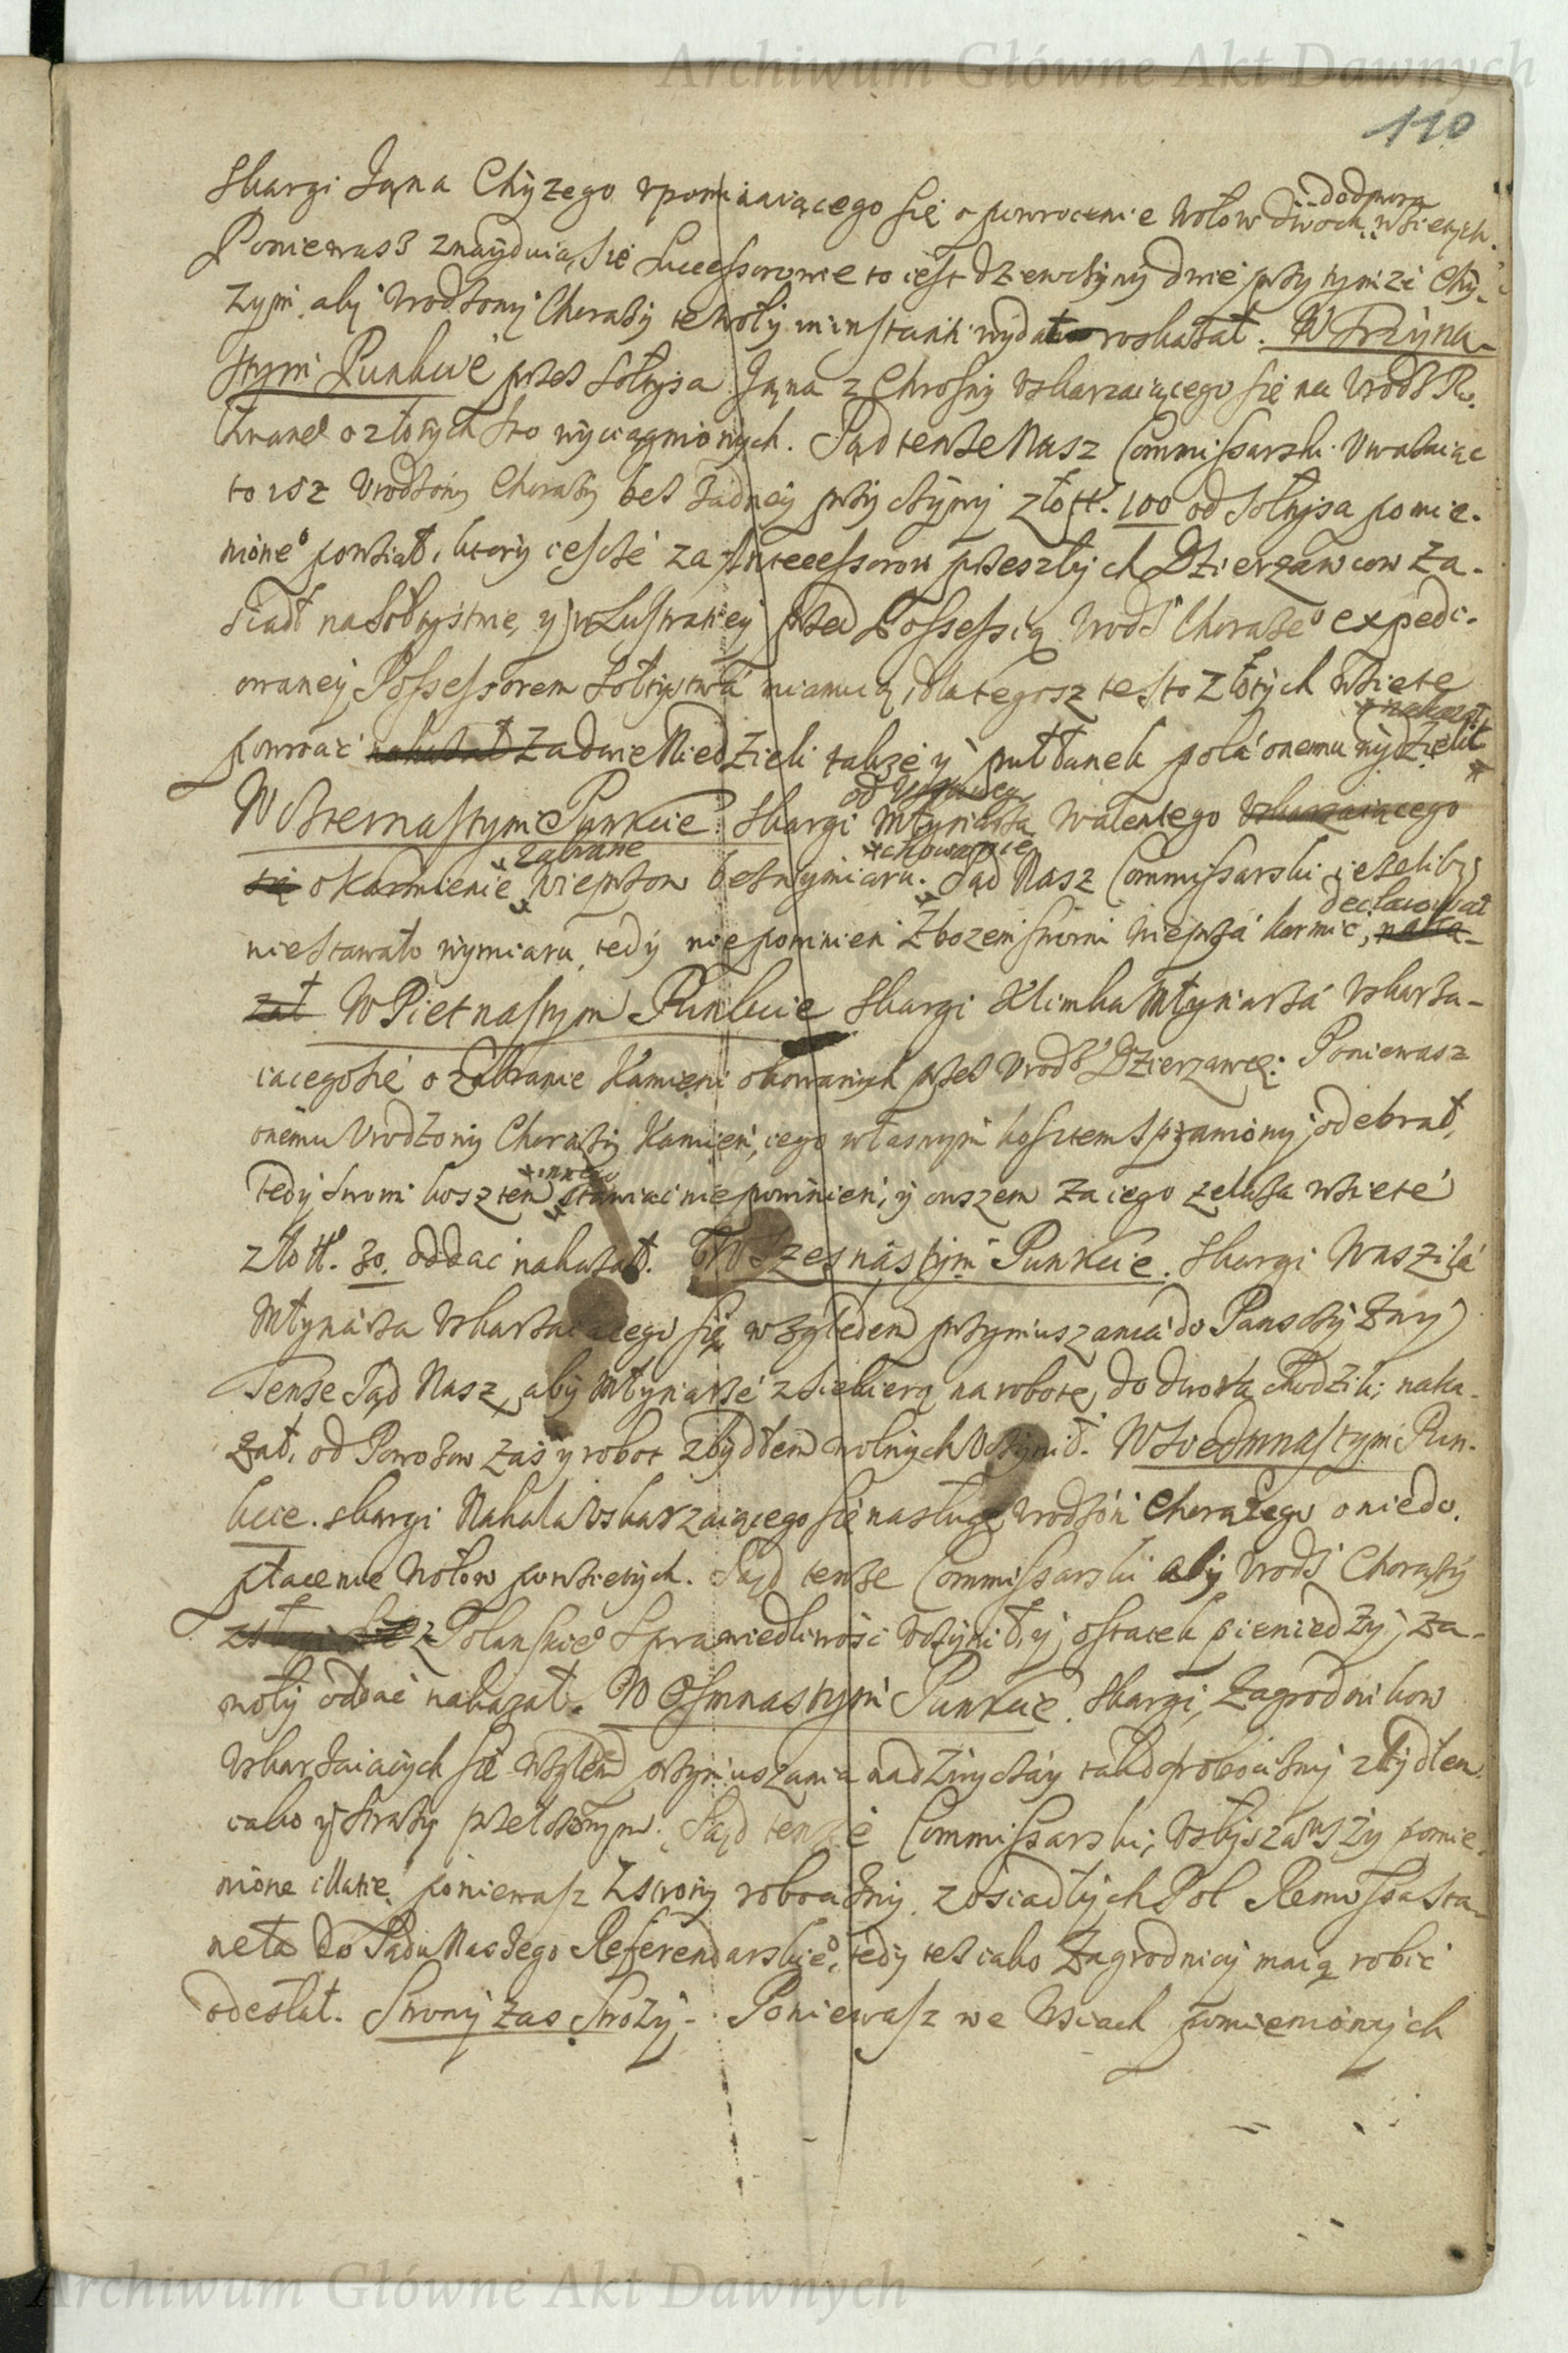 Archiwum Główne Akt Dawnych
110
Skargi Jana Chyzego vpominaiącego się o powrocenie Wołow dwoch do dwora wzietych.
Poniewasz znayduią się Successorowie to iest dziewczyny dwie przy tymze Chy-
zym, aby Vrodzony Chorąży te woły in instanti wydał roskazał. W Trzyna-
stym Punkcie przez Sołtysa Jana z Chrosny Vskarzaiącego się na Vrodz
o złotych sto wyciągnionych. Sąd tenze Nasz Commissarski Vwazaiąc
to isz Vrodzony Chorąży bez żadney przyczyny złott. 100 od Sołtysa pomie-
nione° powziął, ktory ieszcze za Antecessorow przeszłych Dzierzawcow za-
siadł na Sołtystwie, y w Lustracey przed Possessią Vrodz Chorąże° expedi-
owaney Possessorem Sołtystwa mianuią, dlategosz te sto Złotych wziete
powrocic nakazał za dwie Niedzieli takze y pułłanek pola onemu wydzielić
nakazał
W Czternastym Punkcie Skargi Młynarza Walentego Vskarzaiącego
się o Karmienie zabrane wieprzow bez wymiaru. chowanie Sąd Nasz Commissarski iezeliby
niestawało wymiaru, tedy niepowinien Zbozem swoim Wieprza karmic, declarował naka-
zał W Pietnastym Punkcie Skargi Klimka Młynarza Vskarza-
iacego sie o Zabranie Kamieni okowanych przez Vrodz Dzierzawcę: Poniewasz
onemu Vrodzony Chorąży Kamień, iego własnym kosztem sprawiony, odebrał,
tedy swoim kosztem innego stawiac niepowinien, y owszem za iego zelaza wziete
złott. 30. oddac nakazał. W Szesnastym Punkcie. Skargi Waszila
Młynarza Vskarzaiącego się względem przymuszania do Panszczyzny
Tenze Sąd Nasz, aby Młynarze z siekierą na robote do dwora chodzili, naka-
zał, od Powozow zaś y robot z bydłem wolnych Vczynił. W Siedmnastym Pun-
kcie. skargi Nakala Vskarzaiącego się na sługę Vrodzon Chorążego o niedo-
płacenie Wołow powzietych. Sąd tenze Commissarski aby Vrodz Chorąży
z Polanskie° Sprawiedliwość Vczynił, y ostatek pieniedzy, za
woły oddać nakazał. W Osmnastym Punkcie. Skargi, Zagrodnikow
Vskarzaiących się wzglem przymuszania nadzwyczay tak do robocizny z bydłem
iako y Strazy Sąd tenze Commissarski, Vsłyszawszy pomie-
nione illatie, poniewasz z strony robocizny z osiadłych Pol Remissa sta-
neła do Sądu Naszego Referendarskie°, tedy tez iako Zagrodnicy maią robić
odesłał. Strony zas Stroży - Poniewasz we Wsiach pomienionych
Archiwum Główne Akt Dawnych